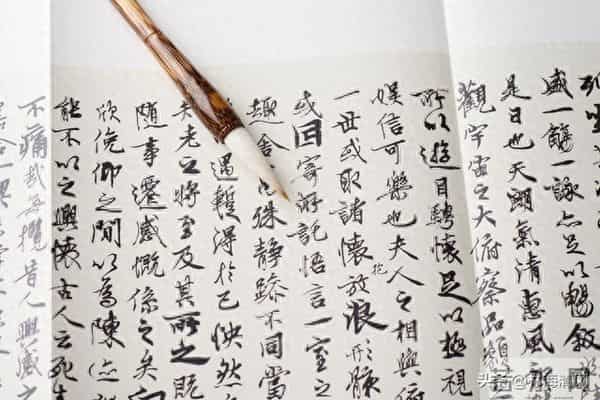 列
盛一觴一詠亦足以暢敘
是日也天朗氣清惠風和
觀宇宙之大俯察品類
所以遊目騁懷足以極視
娛信可樂也夫人之相與俯
一世或取諸懷抱放浪形骸
或寄悟言一室之
趣舍殊靜躁不同當
遇暫得於己怏然
老之將至及其所之既
隨事遷感慨係之矣向
欣俛仰之間以為陳
能不以之興懷古人云死生
不痛哉每攬昔人興感之
合一契
头条